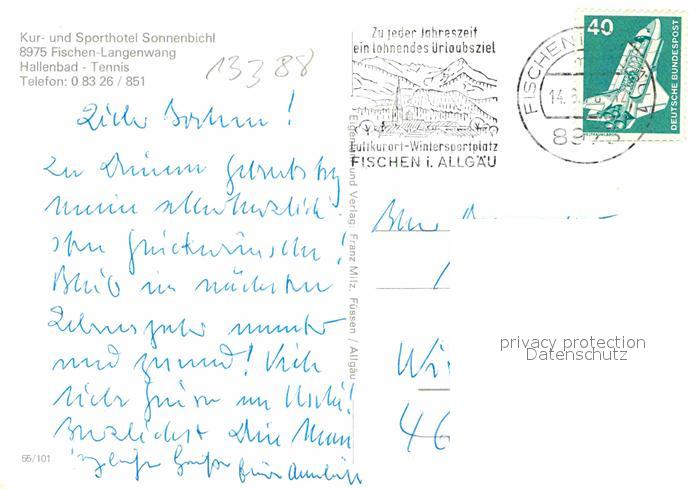 Kur- und Sporthotel Sonnenbichl
8975 Fischen-Langenwang
Hallenbad - Tennis
Telefon: 0 83 26 / 851
13388
Zu jeder Jahreszeit
ein lohnendes Urlaubsziel
Luftkurort-Wintersportplatz
FISCHEN i. ALLGÄU
FISCHEN
14.
8975
40
DEUTSCHE BUNDESPOST
Eigentum und Verlag: Franz Milz, Füssen / Allgäu
!
Zu Deinem Geburtstag
meine allerherzlich-
sten Glückwünsche!
Bleib im nächsten
Lebensjahr munter
und gesund! Viele
liebe Grüße an Uschi!
Herzlichst Deine
Grüße
46
privacy protection
Datenschutz
55/101